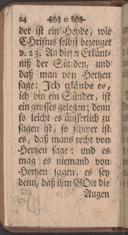 24 o
det ist ein Heyde, wie
Christus selbst bezeuget
v. 23. An dieser Erkänt-
niß der Sünden, und
daß man von Hertzen
sage: Ich gläube es,
ich bin ein Sünder, ist
ein grosses gelegen; denn
so leicht es äusserlich zu
sagen ist, so schwer ist
es, daß mans recht von
Hertzen sage: und es
mag es niemand von
Hertzen sagen, es sey
denn, daß ihm GOtt die
Augen